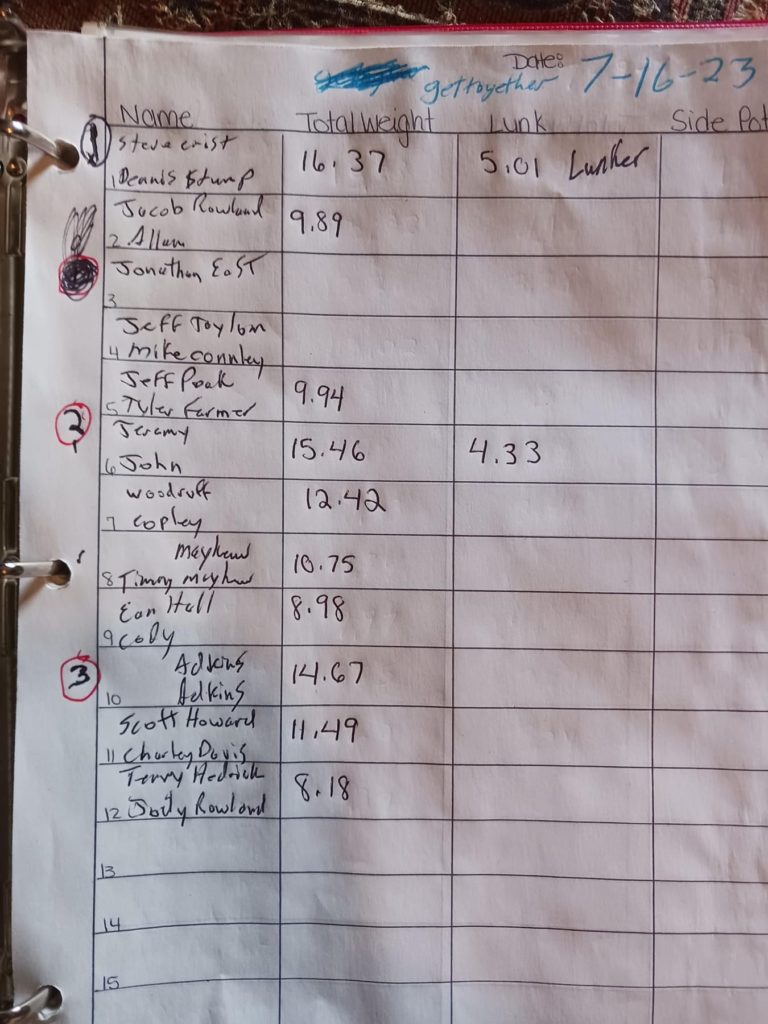 Date: 7-16-23
gettogether
Name Total Weight Lunk Side Pot
1 Steve Crist 16.37 5.01 Lunker
1 Dennis Stump
Jacob Rowland 9.89
2 Allen
Jonathan East
3
Jeff Taylor
4 Mike Connley
Jeff Poak 9.94
5 Tyler Farmer
2 Jeramy 15.46 4.33
6 John
Woodruff 12.42
7 Copley
Mayhew 10.75
8 Timmy Mayhew
Ean Hall 8.98
9 Cody
3 Adkins 14.67
10 Adkins
Scott Howard 11.49
11 Charley Davis
Terry Hedrick 8.18
12 Jody Rowland
13
14
15